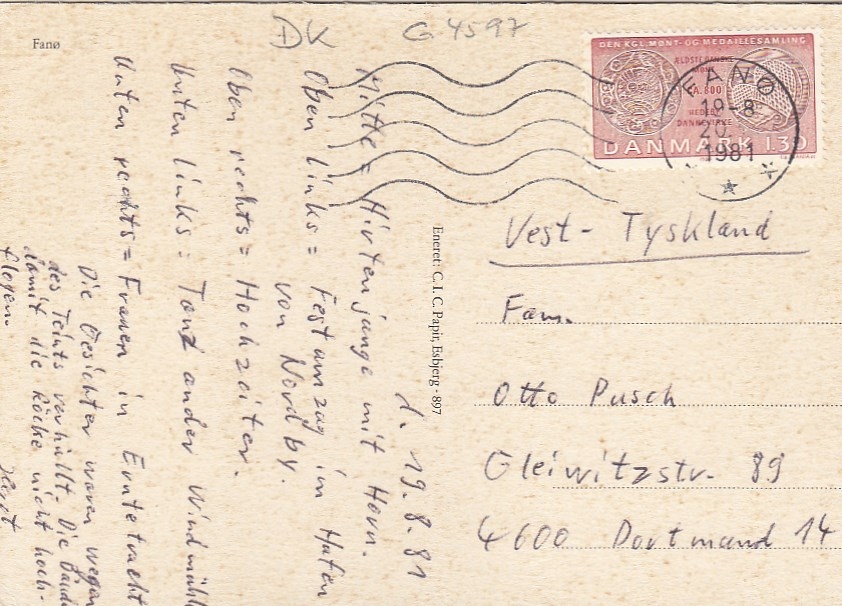 Fanø
DK
G 4597
DEN KGL. MØNT- OG MEDAILLESAMLING
ÆLDSTE DANSKE
MØNT
CA. 800
HEDEBY
DANNEVIRKE
DANMARK 1.30
FANØ
19-8
20.
1981
Vest-Tyskland
Fam.
Otto Pusch
Gleiwitzstr. 89
4600 Dortmund 14
Eneret: C.I.C. Papir, Esbjerg - 897
d. 19.8.81
Mitte = Hirtenjunge mit Horn.
Oben links = Festumzug im Hafen
von Nordby.
Oben rechts = Hochzeiter.
Unten links = Tanz an der Windmühl
Unten rechts = Frauen in Erntetracht
Die Gesichter waren wegen
des Teints verhüllt. Die Bänd
damit die Röcke nicht hoch-
flogen.